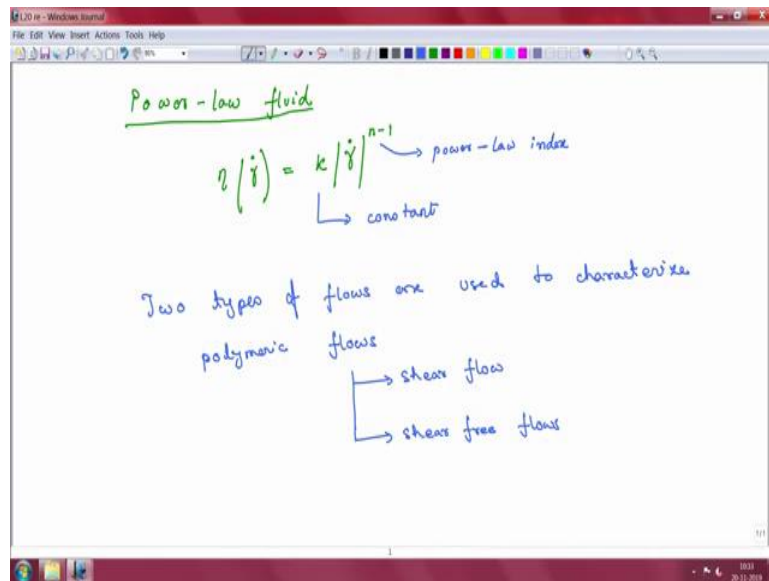 L20 re - Windows Journal
File Edit View Insert Actions Tools Help
Power-law fluid
η(γ̇) = k|γ̇|ⁿ⁻¹ → power-law index
→ constant
Two types of flows are used to characterize
polymeric flows
→ shear flow
→ shear free flows
1/1
1
10:33
20-11-2019